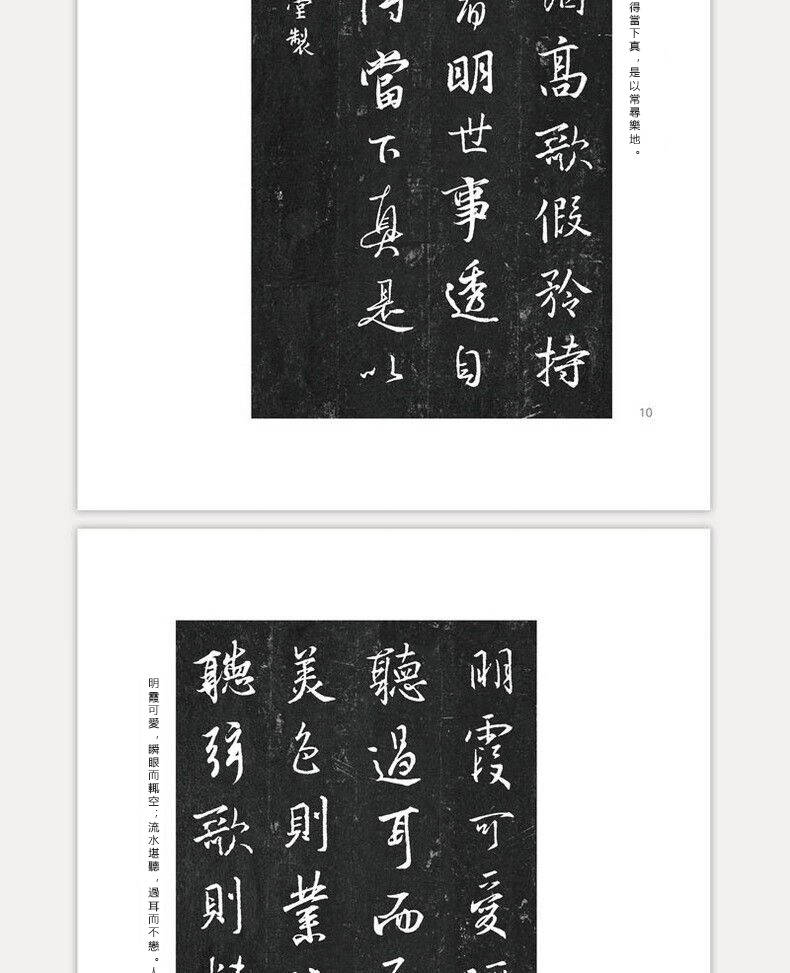 得當下真，是以常尋樂地。
高歌假矜持
明世事透自
當下真是以
堂製
10
明霞可愛
聽過耳而
美色則業
聽弦歌則
明霞可愛，瞬眼而輒空；流水堪聽，過耳而不戀。